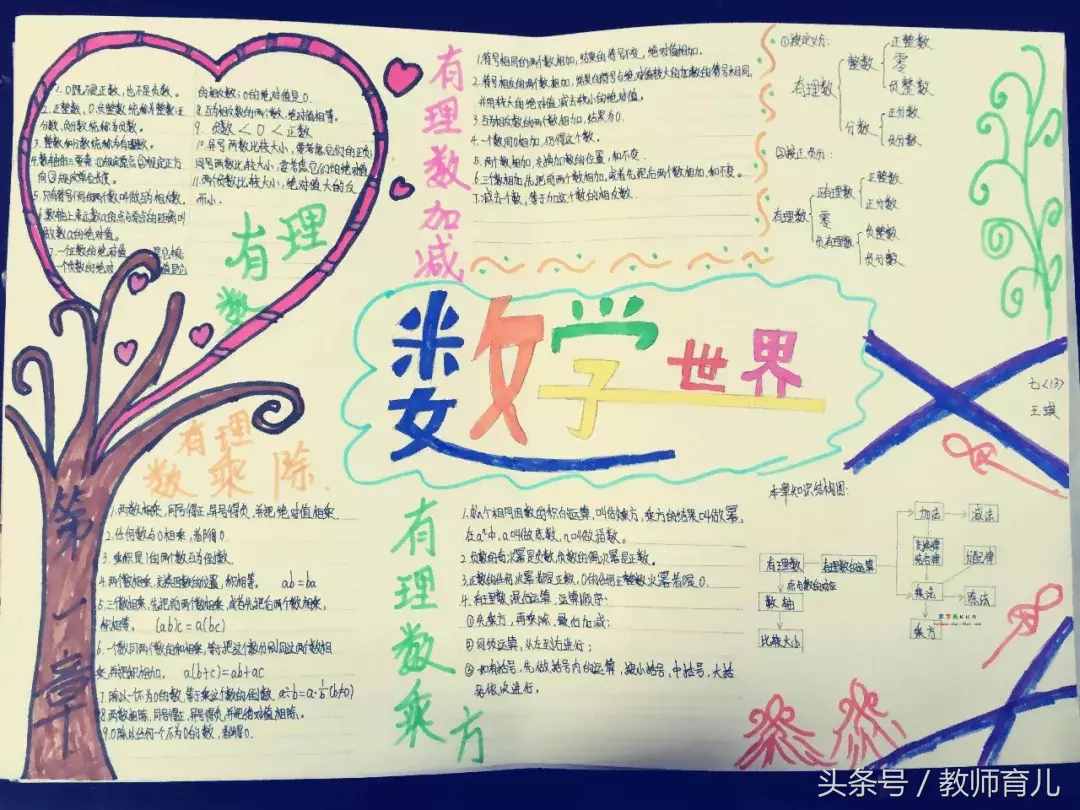 2.0既不是正数,也不是负数。
2.正整数,0,负整数统称为整数,正
分数,负分数统称为负数。
3.整数和分数统称为有理数。
5.只有符号不同的两个数叫做互为相反数。
6.数轴上表示数a的点与原点的距离叫
做数a的绝对值。
的相反数;0的绝对值是0.
8.互为相反数的两个数,绝对值相等。
9.负数<0<正数
10.异号两数比较大小,要考虑它们的正负;
同号两数比较大小,要考虑它们的绝对值
11.两个负数比较大小,绝对值大的反
而小.
有理数
有理数加减
1.符号相同的两个数相加,结果的符号不变,绝对值相加.
2.符号相反的两个数相加,结果的符号与绝对值较大的加数的符号相同,
并用较大的绝对值减去较小的绝对值.
3.互为相反数的两个数相加,结果为0.
4.一个数同0相加,仍得这个数.
5.两个数相加,交换加数的位置,和不变.
6.三个数相加,先把前两个数相加,或者先把后两个数相加,和不变.
7.减去一个数,等于加这个数的相反数.
①按定义分:
有理数
整数
正整数
零
负整数
分数
正分数
负分数
②按正负分:
有理数
正有理数
正整数
正分数
零
负有理数
负整数
负分数
数学世界
七(13)
王
有理数乘除
第一章
1.两数相乘,同号得正,异号得负,并把绝对值相乘.
2.任何数与0相乘,都得0.
3.乘积是1的两个数互为倒数.
4.两个数相乘,交换因数的位置,积相等。 ab=ba
5.三个数相乘,先把前两个数相乘,或者先把后两个数相乘,
积相等。 (ab)c=a(bc)
6.一个数同两个数的和相乘,等于把这个数分别同这两个数相
乘,再把积相加。 a(b+c)=ab+ac
7.除以一个不为0的数,等于乘这个数的倒数. a÷b=a·1/b(b≠0)
8.两数相除,同号得正,异号得负,并把绝对值相除.
9.0除以任何一个不为0的数,都得0.
有理数乘方
1.求n个相同因数的积的运算,叫做乘方,乘方的结果叫做幂,
在aⁿ中,a叫做底数,n叫做指数。
2.负数的奇次幂是负数,负数的偶次幂是正数。
3.正数的任何次幂都是正数,0的任何正整数次幂都是0.
4.有理数混合运算,运算顺序:
①先乘方,再乘除,最后加减;
②同级运算,从左到右进行;
③如有括号,先做括号内的运算,按小括号,中括号,大括
号依次进行。
本章知识结构图:
有理数
有理数的运算
数轴
比较大小
加法
减法
交换律
结合律
分配律
乘法
除法
乘方
头条号 / 教师育儿